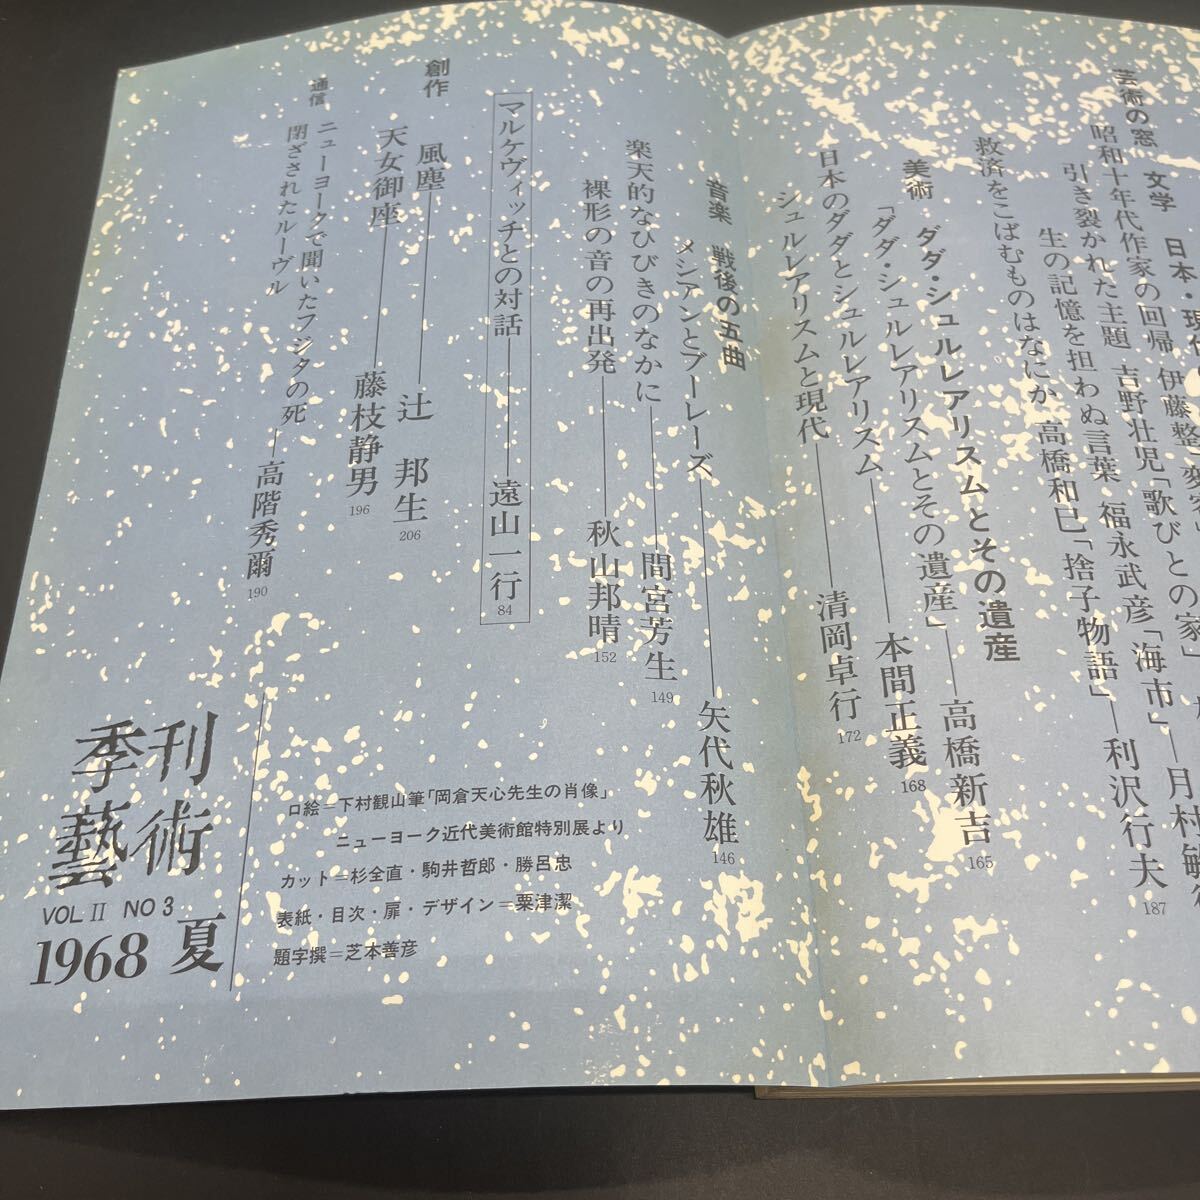 芸術の窓 文学 日本・現代
昭和十年代作家の回帰 伊藤整「変
引き裂かれた主題 吉野壮児「歌びとの家」―月村敏
生の記憶を担わぬ言葉 福永武彦「海市」―利沢行夫 187
救済をこばむものはなにか 高橋和巳「捨子物語」
美術 ダダ・シュルレアリスムとその遺産
「ダダ・シュルレアリスムとその遺産」―高橋新吉 165
日本のダダとシュルレアリスム―本間正義 168
シュルレアリスムと現代―清岡卓行 172
音楽 戦後の五曲
メシアンとブーレーズ―矢代秋雄 146
楽天的なひびきのなかに―間宮芳生 149
裸形の音の再出発―秋山邦晴 152
マルケヴィッチとの対話―遠山一行 84
創作
風塵―辻 邦生 206
天女御座―藤枝静男 196
通信
ニューヨークで聞いたフジタの死
閉ざされたルーヴル―高階秀爾 190
季刊
藝術
VOL II NO 3
1968 夏
口絵＝下村観山筆「岡倉天心先生の肖像」
ニューヨーク近代美術館特別展より
カット＝杉全直・駒井哲郎・勝呂忠
表紙・目次・扉・デザイン＝粟津潔
題字撰＝芝本善彦